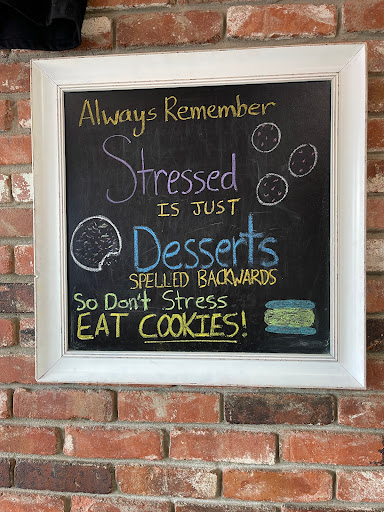 Always Remember
Stressed
IS JUST
Desserts
SPELLED BACKWARDS
So Don't Stress
EAT COOKIES!